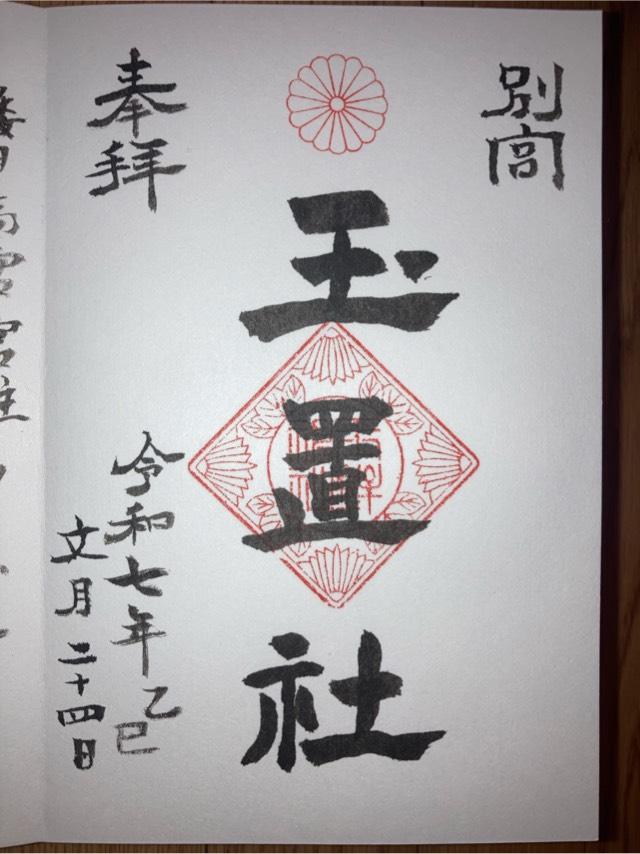 別宮
玉置社
奉拝
令和七年乙巳
文月二十四日